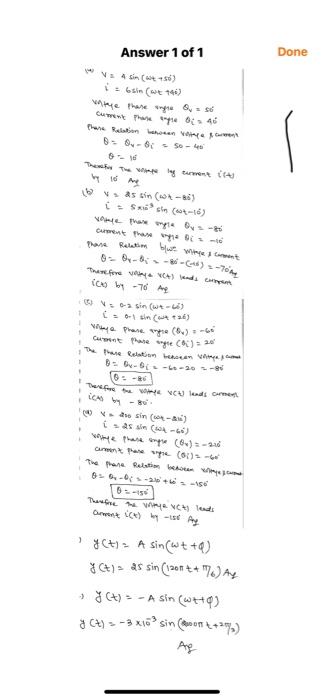 Answer 1 of 1
Done
(a) V = 4 sin (ωt+50)
i = 6 sin (ωt+40)
Voltage Phase angle θv = 50
Current Phase angle θi = 40
Phase Relation between Voltage & current
θ = θv - θi = 50 - 40
θ = 10
Therefor the Voltage by current i(t)
by 10 Ans
(b) V = 25 sin (ωt-80)
i = 5×10⁻³ sin (ωt-10)
Voltage Phase angle θv = -80
Current Phase angle θi = -10
Phase Relation b/w Voltage & current
θ = θv - θi = -80 - (-10) = -70 Ans
Therefore Voltage V(t) leads current
i(t) by -70 Ans
(c) V = 0.2 sin (ωt-60)
i = 0.1 sin (ωt+20)
Voltage Phase angle (θv) = -60
Current Phase angle (θi) = 20
The Phase Relation between Voltage & current
θ = θv - θi = -60 - 20 = -80
θ = -80
Therefore the Voltage V(t) leads current
i(t) by -80.
(d) V = 200 sin (ωt-210)
i = 25 sin (ωt-60)
Voltage Phase angle (θv) = -210
Current Phase angle (θi) = -60
The Phase Relation between Voltage & current
θ = θv - θi = -210 + 60 = -150
θ = -150
Therefore the Voltage V(t) leads
Current i(t) by -150 Ans
) y(t) = A sin(ωt+φ)
y(t) = 25 sin(120πt + π/6) Ans
) y(t) = -A sin(ωt+φ)
y(t) = -3×10⁻³ sin(2000πt + 2π/3)
Ans